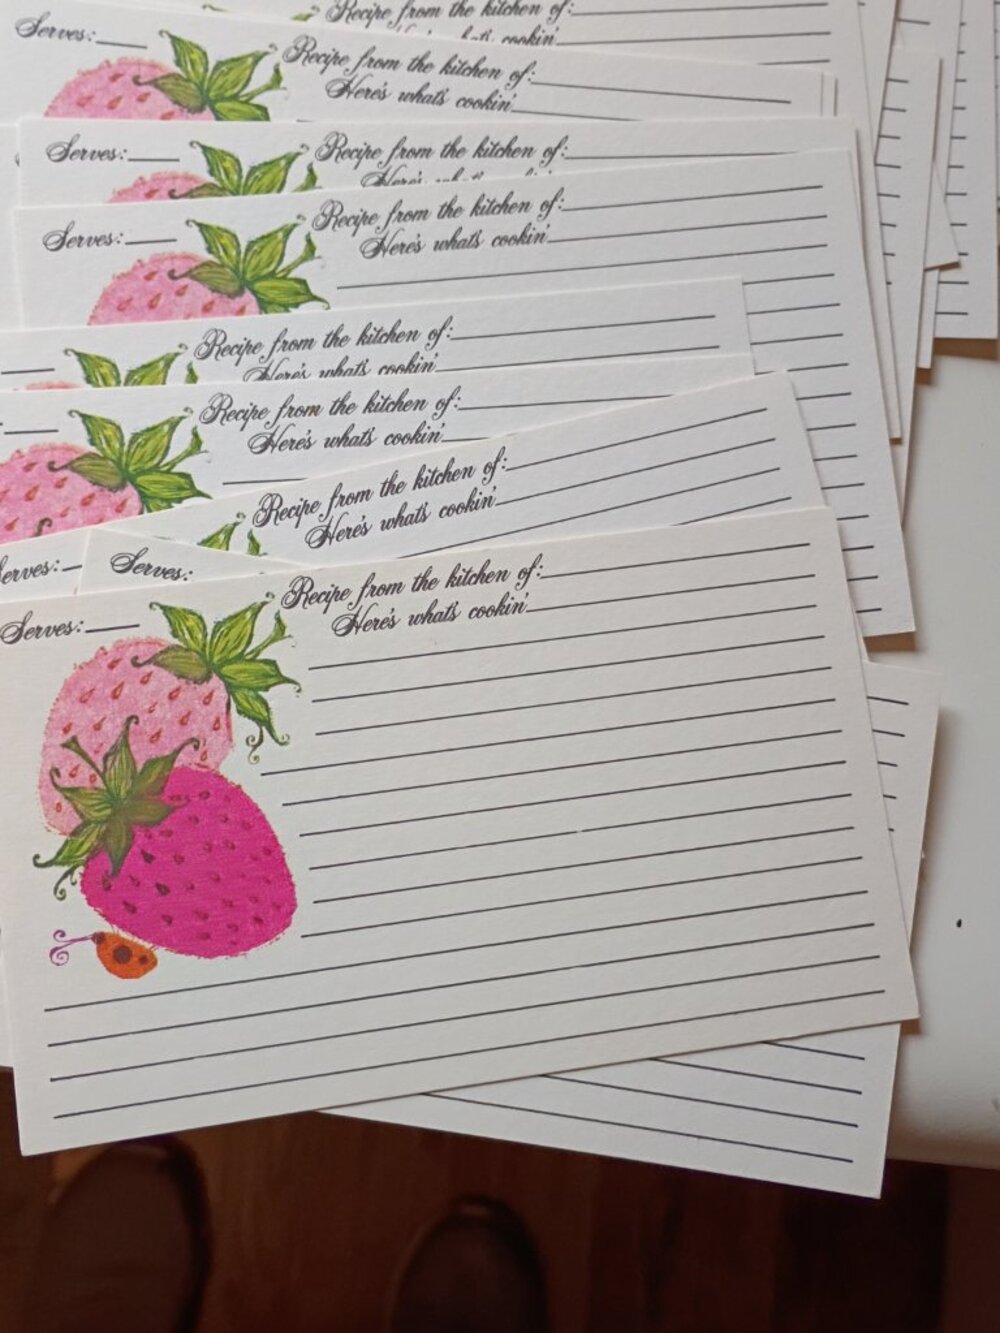 Recipe from the kitchen of:
cookin'
Serves:
Recipe from the kitchen of:
Here's what's cookin'
Serves:
Recipe from the kitchen of:
Serves:
Recipe from the kitchen of:
Here's what's cookin'
Recipe from the kitchen of:
Here's what's cookin'
Recipe from the kitchen of:
Here's what's cookin'
Recipe from the kitchen of:
Here's what's cookin'
Serves:
Serves:
Recipe from the kitchen of:
Here's what's cookin'
Serves: